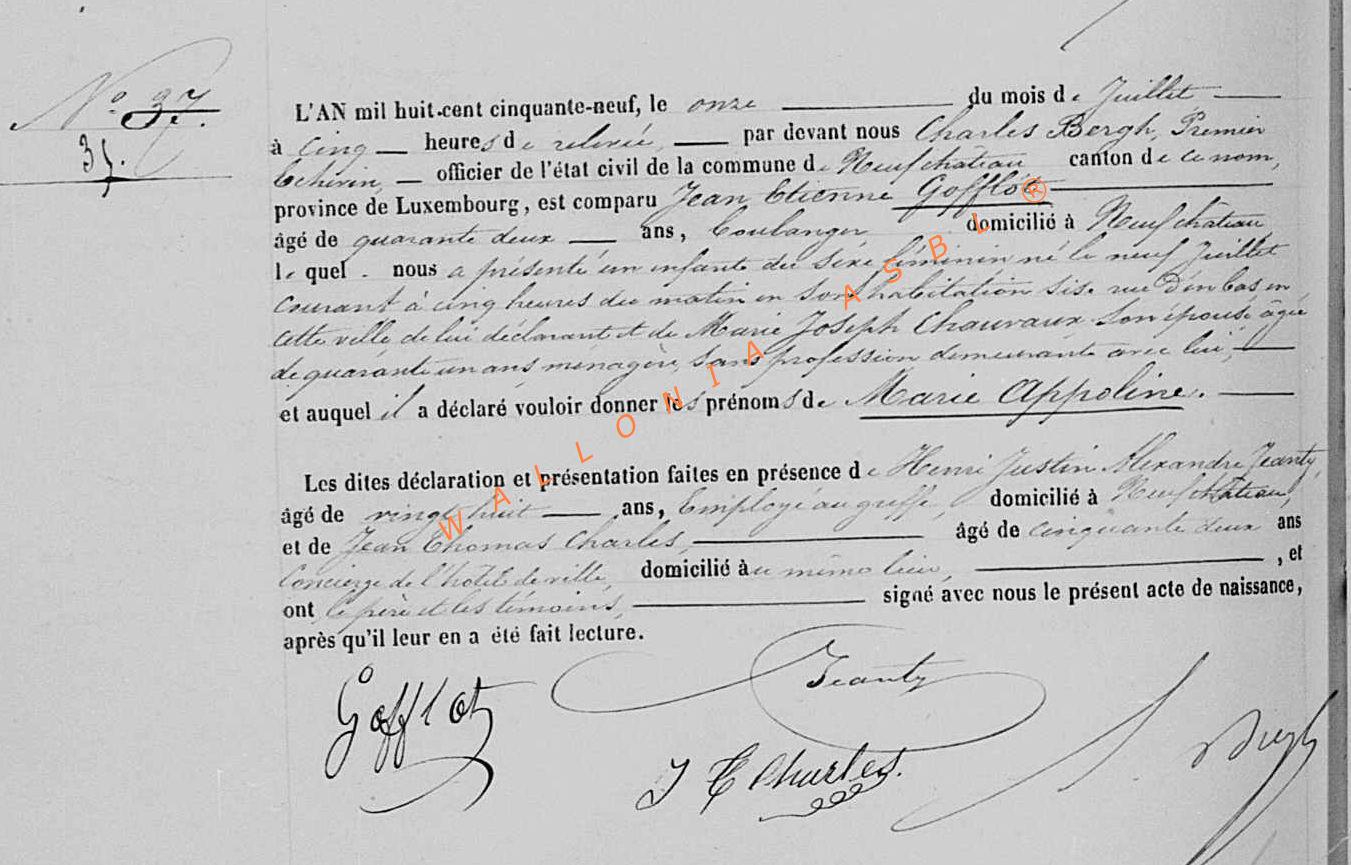 N° 37.
35.
L'AN mil huit-cent cinquante-neuf, le onze du mois de Juillet
à cinq heures de relevée, par devant nous Charles Bergh, Premier
Echevin, officier de l'état civil de la commune de Neufchâteau canton de ce nom,
province de Luxembourg, est comparu Jean Etienne Gofflot
âgé de quarante deux ans, boulanger domicilié à Neufchâteau,
le quel nous a présenté un enfant du sèxe féminin né le neuf Juillet
courant à cinq heures du matin en son habitation sise rue D'en bas en
cette ville de lui déclarant et de Marie Joseph Chauvaux son épouse âgée
de quarante un ans menagère, sans profession demeurante avec lui,
et auquel il a déclaré vouloir donner les prénoms de Marie Appoline.
Les dites déclaration et présentation faites en présence de Henri Justin Alexandre Jeanty,
âgé de vingt huit ans, Employé au greffe, domicilié à Neufchâteau,
et de Jean Thomas Charles, âgé de cinquante deux ans
Concierge de l'hôtel de ville, domicilié au même lieu, , et
ont le père et les témoins, signé avec nous le présent acte de naissance,
après qu'il leur en a été fait lecture.
Gofflot
Jeanty
J T Charles.
Bergh
WALLONIA ASBL ®